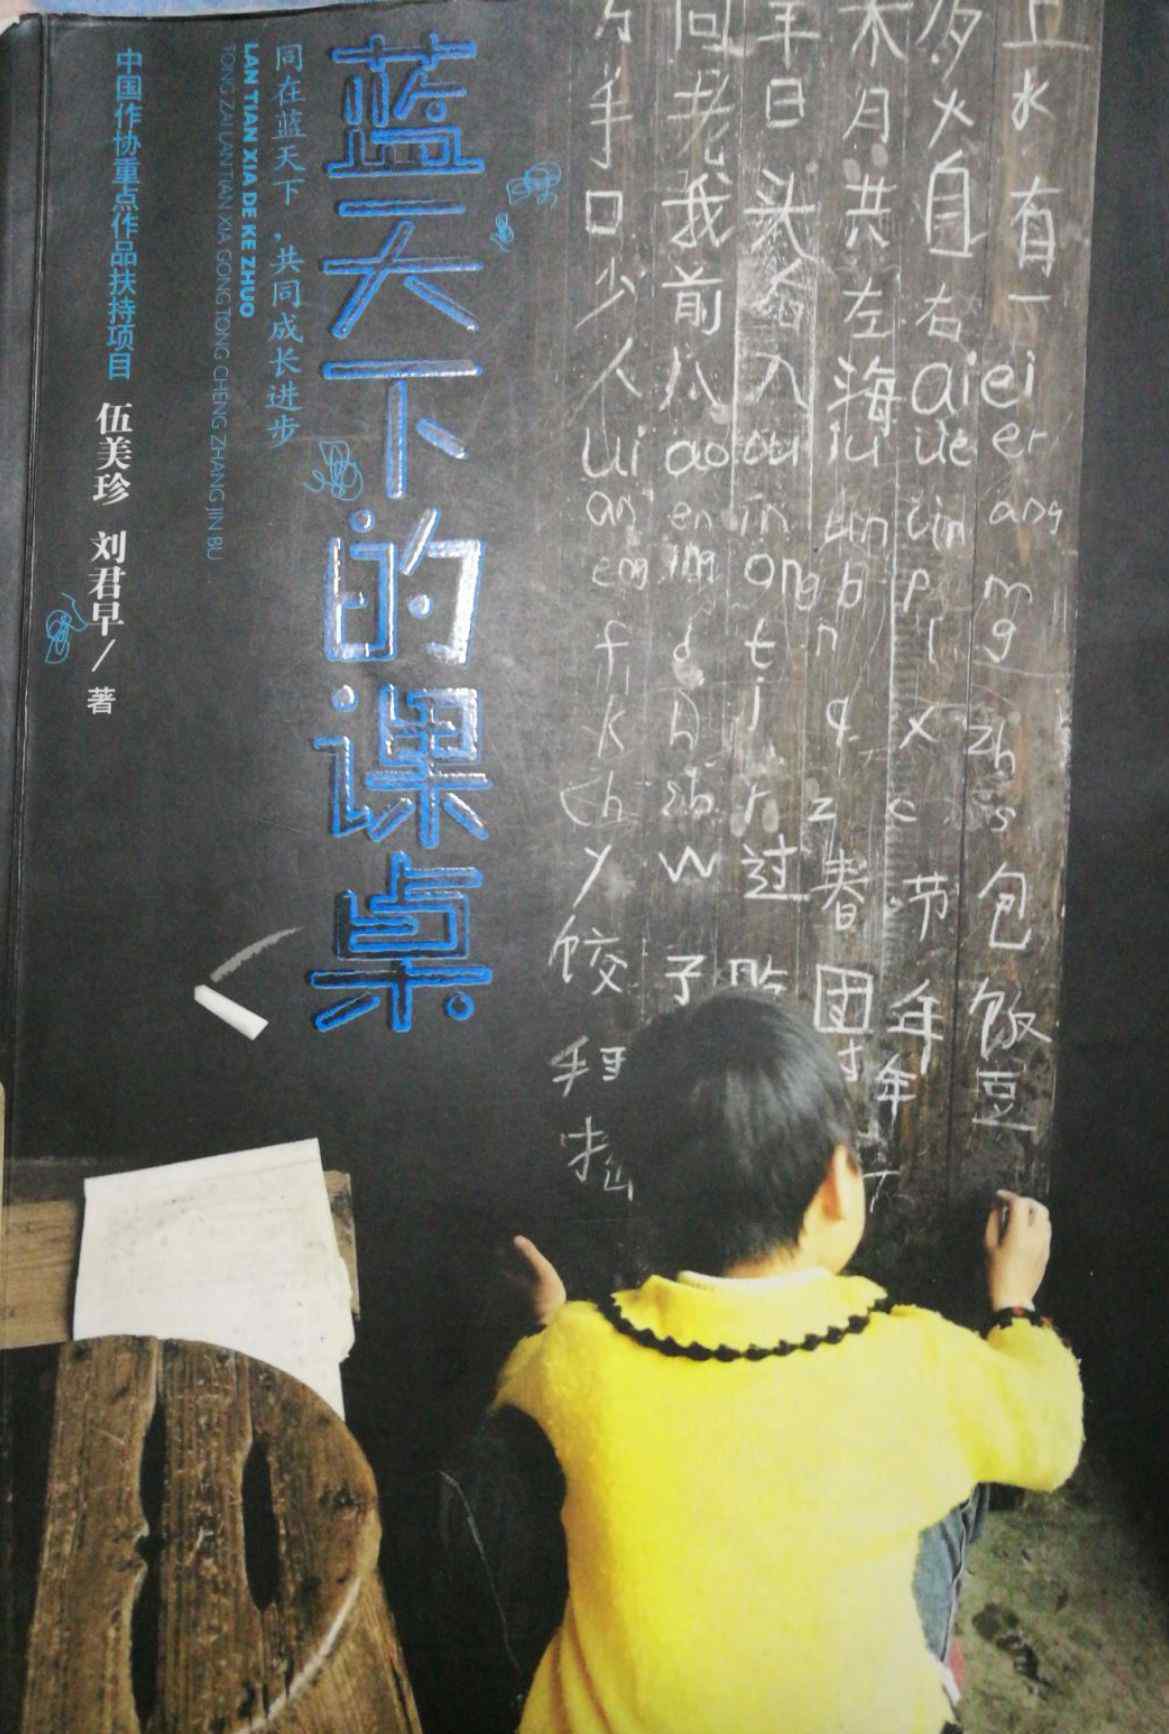 蓝天下的课桌
同在蓝天下,共同成长进步
LAN TIAN XIA DE KE ZHUO
TONG ZAI LAN TIAN XIA GONG TONG CHENG ZHANG JIN BU
中国作协重点作品扶持项目
伍美珍 刘君早/著
方 回 年 木 多 上
手 老 日 月 火 水
口 我 头 共 自 有
少 前 左 右 一
人 入 海 ai ei
ui ao ou iu üe er
an en in un ün ang
eng ing ong b p m
f d t n l g
k h j q x zh
ch sh r z c s
y w 过 春 节 包
饺 子 团 年 饭
年 豆